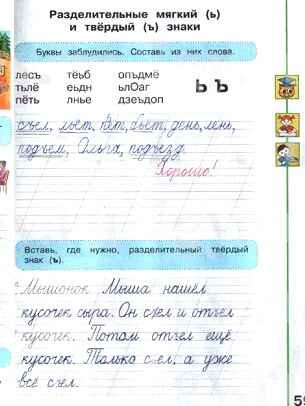 Разделительные мягкий (ь)
и твёрдый (ъ) знаки
Буквы заблудились. Составь из них слова.
лесъ тёьб опъдмё
тьлё еьдн ьлОаг Ь Ъ
пёть лнье дзеъдоп
съел, льёт, пёт, бьёт, день, лень,
подъём, Ольга, подъезд.
Хорошо!
Вставь, где нужно, разделительный твёрдый
знак (ъ).
Мышонок Мыша нашёл
кусочек сыра. Он съел и отъел
кусочек. Потом отъел ещё
кусочек. Только с ел, а уже
всё съел.